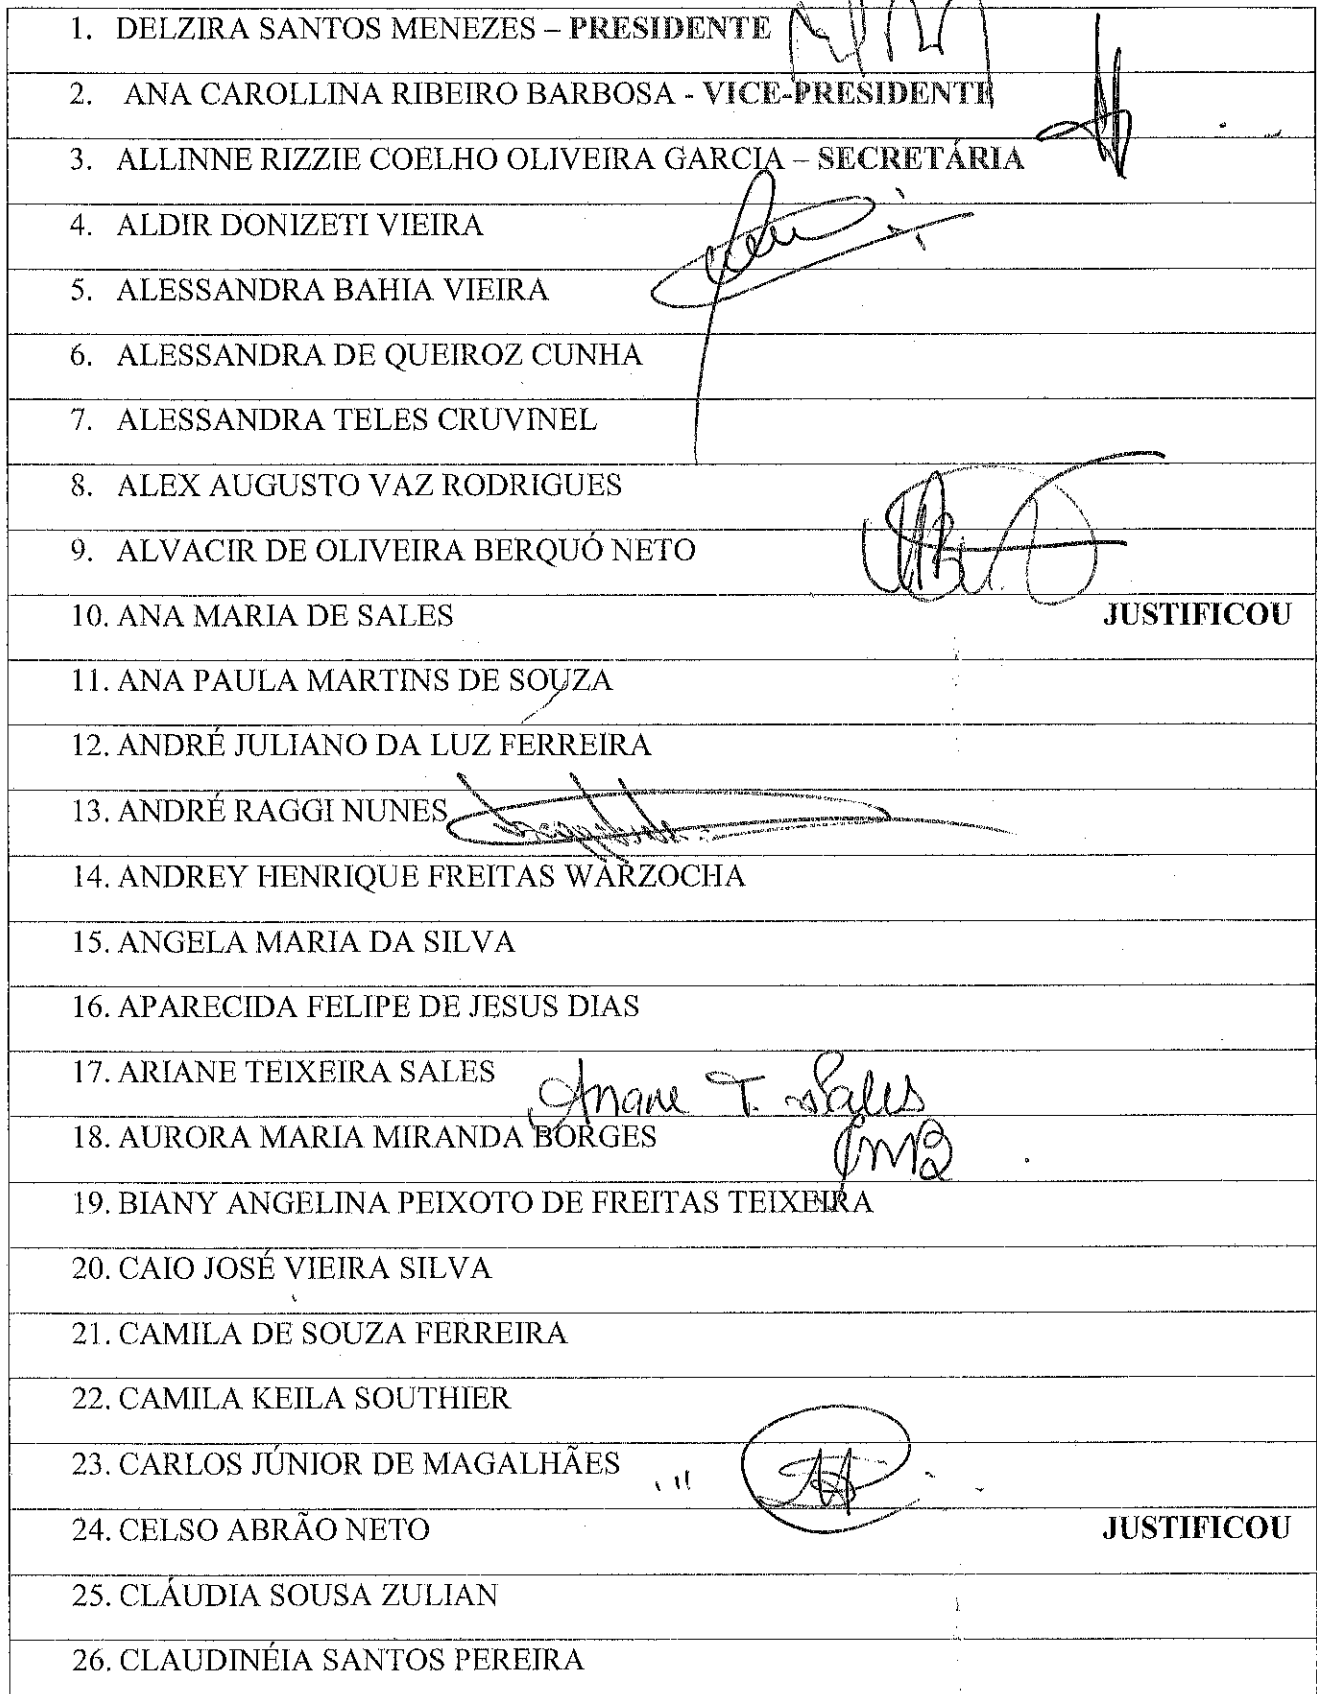 1. DELZIRA SANTOS MENEZES – PRESIDENTE
2. ANA CAROLLINA RIBEIRO BARBOSA - VICE-PRESIDENTE
3. ALLINNE RIZZIE COELHO OLIVEIRA GARCIA – SECRETÁRIA
4. ALDIR DONIZETI VIEIRA
5. ALESSANDRA BAHIA VIEIRA
6. ALESSANDRA DE QUEIROZ CUNHA
7. ALESSANDRA TELES CRUVINEL
8. ALEX AUGUSTO VAZ RODRIGUES
9. ALVACIR DE OLIVEIRA BERQUÓ NETO
10. ANA MARIA DE SALES JUSTIFICOU
11. ANA PAULA MARTINS DE SOUZA
12. ANDRÉ JULIANO DA LUZ FERREIRA
13. ANDRÉ RAGGI NUNES
14. ANDREY HENRIQUE FREITAS WARZOCHA
15. ANGELA MARIA DA SILVA
16. APARECIDA FELIPE DE JESUS DIAS
17. ARIANE TEIXEIRA SALES Ariane T. Sales
18. AURORA MARIA MIRANDA BORGES
19. BIANY ANGELINA PEIXOTO DE FREITAS TEIXEIRA
20. CAIO JOSÉ VIEIRA SILVA
21. CAMILA DE SOUZA FERREIRA
22. CAMILA KEILA SOUTHIER
23. CARLOS JÚNIOR DE MAGALHÃES
24. CELSO ABRÃO NETO JUSTIFICOU
25. CLÁUDIA SOUSA ZULIAN
26. CLAUDINÉIA SANTOS PEREIRA